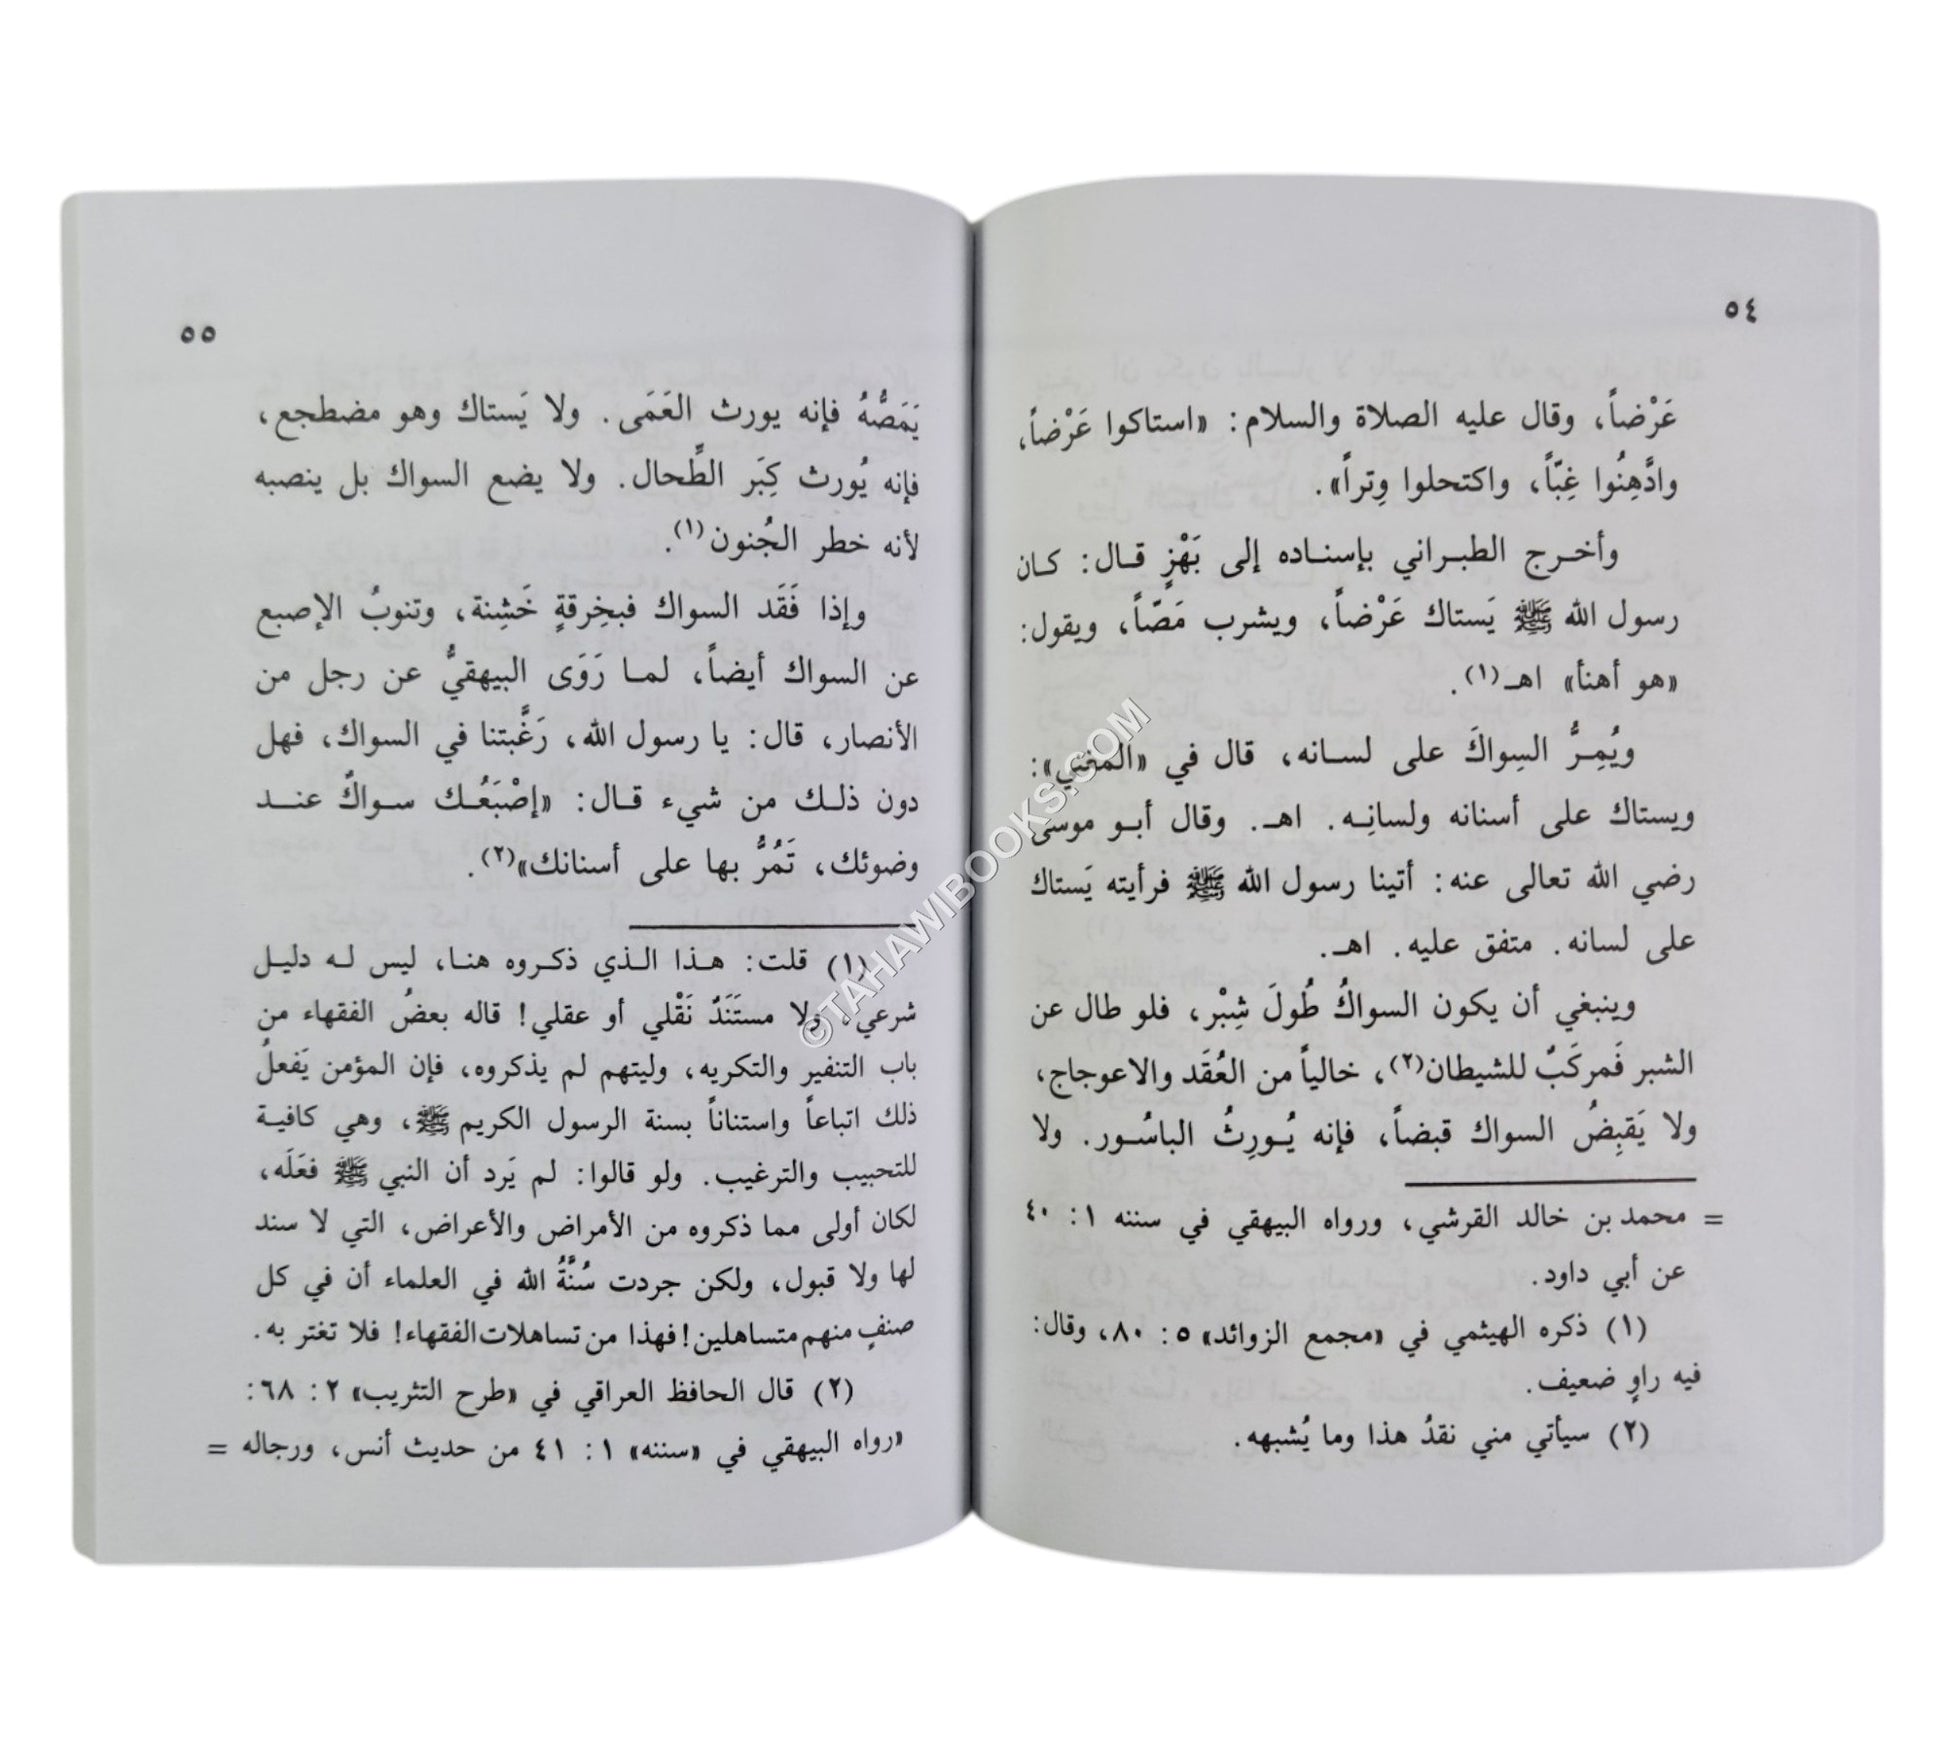 ٥٤
عَرْضاً، وقال عليه الصلاة والسلام: «استاكوا عَرْضاً،
وادَّهِنُوا غِبّاً، واكتحلوا وِتراً».
وأخرج الطبراني بإسناده إلى بَهْزٍ قال: كان
رسول الله ﷺ يَستاك عَرْضاً، ويشرب مَصّاً، ويقول:
«هو أهنأ» اهـ(١).
ويُمِرُّ السِواكَ على لسانه، قال في «المغني»:
ويستاك على أسنانه ولسانِه. اهـ. وقال أبو موسى
رضي الله تعالى عنه: أتينا رسول الله ﷺ فرأيته يَستاك
على لسانه. متفق عليه. اهـ.
وينبغي أن يكون السواكُ طُولَ شِبْر، فلو طال عن
الشبر فَمركَبٌ للشيطان(٢)، خالياً من العُقَد والاعوجاج،
ولا يَقبِضُ السواك قبضاً، فإنه يُورِثُ الباسُور. ولا
= محمد بن خالد القرشي، ورواه البيهقي في سننه ١: ٤٠
عن أبي داود.
(١) ذكره الهيثمي في «مجمع الزوائد» ٥: ٨٠، وقال:
فيه راوٍ ضعيف.
(٢) سيأتي مني نقدُ هذا وما يُشبهه.
٥٥
يَمَصُّهُ فإنه يورث العَمَى. ولا يَستاك وهو مضطجع،
فإنه يُورث كِبَر الطِّحال. ولا يضع السواك بل ينصبه
لأنه خطر الجُنون(١).
وإذا فَقَد السواك فبخِرقةٍ خَشِنة، وتنوبُ الإصبع
عن السواك أيضاً، لما رَوَى البيهقيُّ عن رجل من
الأنصار، قال: يا رسول الله، رَغَّبتنا في السواك، فهل
دون ذلك من شيء قال: «إصْبَعُك سواكٌ عند
وضوئك، تَمُرُّ بها على أسنانك»(٢).
(١) قلت: هذا الذي ذكروه هنا، ليس له دليل
شرعي، ولا مستَنَدٌ نَقْلي أو عقلي! قاله بعضُ الفقهاء من
باب التنفير والتكريه، وليتهم لم يذكروه، فإن المؤمن يَفعلُ
ذلك اتباعاً واستناناً بسنة الرسول الكريم ﷺ، وهي كافية
للتحبيب والترغيب. ولو قالوا: لم يَرد أن النبي ﷺ فعَلَه،
لكان أولى مما ذكروه من الأمراض والأعراض، التي لا سند
لها ولا قبول، ولكن جردت سُنَّةُ الله في العلماء أن في كل
صنفٍ منهم متساهلين! فهذا من تساهلات الفقهاء! فلا تغتر به.
(٢) قال الحافظ العراقي في «طرح التثريب» ٢: ٦٨:
«رواه البيهقي في «سننه» ١: ٤١ من حديث أنس، ورجاله =
©TAHAWIBOOKS.COM